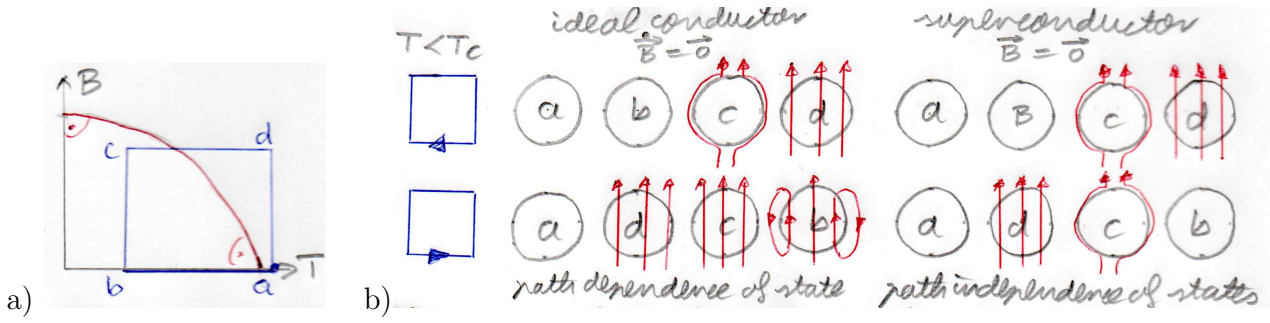 a)
B
c
d
b
a
T
b)
T<Tc
ideal conductor
B⃗=0⃗
a
b
c
d
a
d
c
b
path dependence of state
superconductor
B⃗=0⃗
a
B
c
d
a
d
c
b
path independence of states